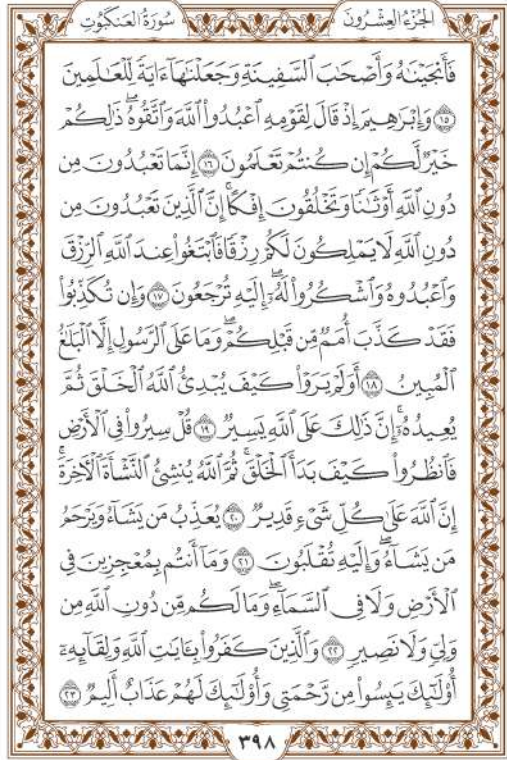 الجُزْءُ العِشْرُونَ سُورَةُ العَنكَبُوتِ
فَأَنجَيْنَٰهُ وَأَصْحَٰبَ ٱلسَّفِينَةِ وَجَعَلْنَٰهَآ ءَايَةً لِّلْعَٰلَمِينَ
١٥ وَإِبْرَٰهِيمَ إِذْ قَالَ لِقَوْمِهِ ٱعْبُدُوا۟ ٱللَّهَ وَٱتَّقُوهُ ۖ ذَٰلِكُمْ
خَيْرٌ لَّكُمْ إِن كُنتُمْ تَعْلَمُونَ ١٦ إِنَّمَا تَعْبُدُونَ مِن
دُونِ ٱللَّهِ أَوْثَٰنًا وَتَخْلُقُونَ إِفْكًا ۚ إِنَّ ٱلَّذِينَ تَعْبُدُونَ مِن
دُونِ ٱللَّهِ لَا يَمْلِكُونَ لَكُمْ رِزْقًا فَٱبْتَغُوا۟ عِندَ ٱللَّهِ ٱلرِّزْقَ
وَٱعْبُدُوهُ وَٱشْكُرُوا۟ لَهُۥٓ ۖ إِلَيْهِ تُرْجَعُونَ ١٧ وَإِن تُكَذِّبُوا۟
فَقَدْ كَذَّبَ أُمَمٌ مِّن قَبْلِكُمْ ۖ وَمَا عَلَى ٱلرَّسُولِ إِلَّا ٱلْبَلَٰغُ
ٱلْمُبِينُ ١٨ أَوَلَمْ يَرَوْا۟ كَيْفَ يُبْدِئُ ٱللَّهُ ٱلْخَلْقَ ثُمَّ
يُعِيدُهُۥٓ ۚ إِنَّ ذَٰلِكَ عَلَى ٱللَّهِ يَسِيرٌ ١٩ قُلْ سِيرُوا۟ فِى ٱلْأَرْضِ
فَٱنظُرُوا۟ كَيْفَ بَدَأَ ٱلْخَلْقَ ۚ ثُمَّ ٱللَّهُ يُنشِئُ ٱلنَّشْأَةَ ٱلْءَاخِرَةَ ۚ
إِنَّ ٱللَّهَ عَلَىٰ كُلِّ شَىْءٍ قَدِيرٌ ٢٠ يُعَذِّبُ مَن يَشَآءُ وَيَرْحَمُ
مَن يَشَآءُ ۖ وَإِلَيْهِ تُقْلَبُونَ ٢١ وَمَآ أَنتُم بِمُعْجِزِينَ فِى
ٱلْأَرْضِ وَلَا فِى ٱلسَّمَآءِ ۖ وَمَا لَكُم مِّن دُونِ ٱللَّهِ مِن
وَلِىٍّ وَلَا نَصِيرٍ ٢٢ وَٱلَّذِينَ كَفَرُوا۟ بِـَٔايَٰتِ ٱللَّهِ وَلِقَآئِهِۦٓ
أُو۟لَٰٓئِكَ يَئِسُوا۟ مِن رَّحْمَتِى وَأُو۟لَٰٓئِكَ لَهُمْ عَذَابٌ أَلِيمٌ ٢٣
٣٩٨